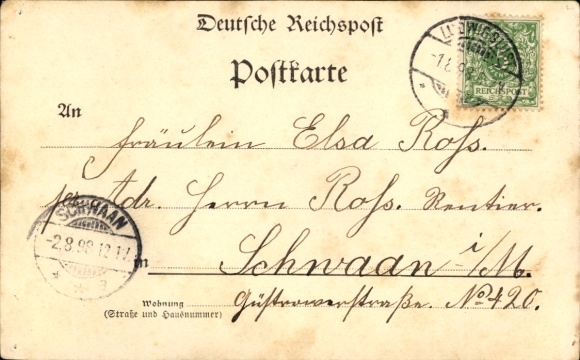 Deutsche Reichspost
Postkarte
LUDWIGSLUST
-1.8.98
REICHSPOST
An
Fräulein Elsa Roß.
pr. Adr. Herrn Roß. Rentier.
SCHWAAN
-2.8.98 12-1N
in Schwaan i/M.
Wohnung
(Straße und Hausnummer)
Güstrowerstraße. No 420.